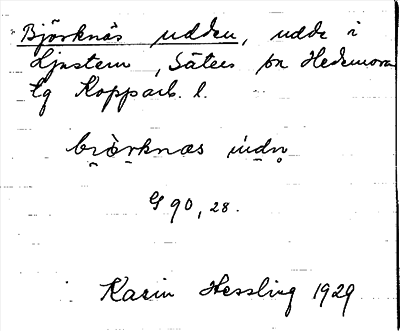 Björknäs udden, udde i
Ljustern, Säters sn Hedemora
tg Kopparb. l.
björknas uddn
G 90, 28.
Karin Hessling 1929